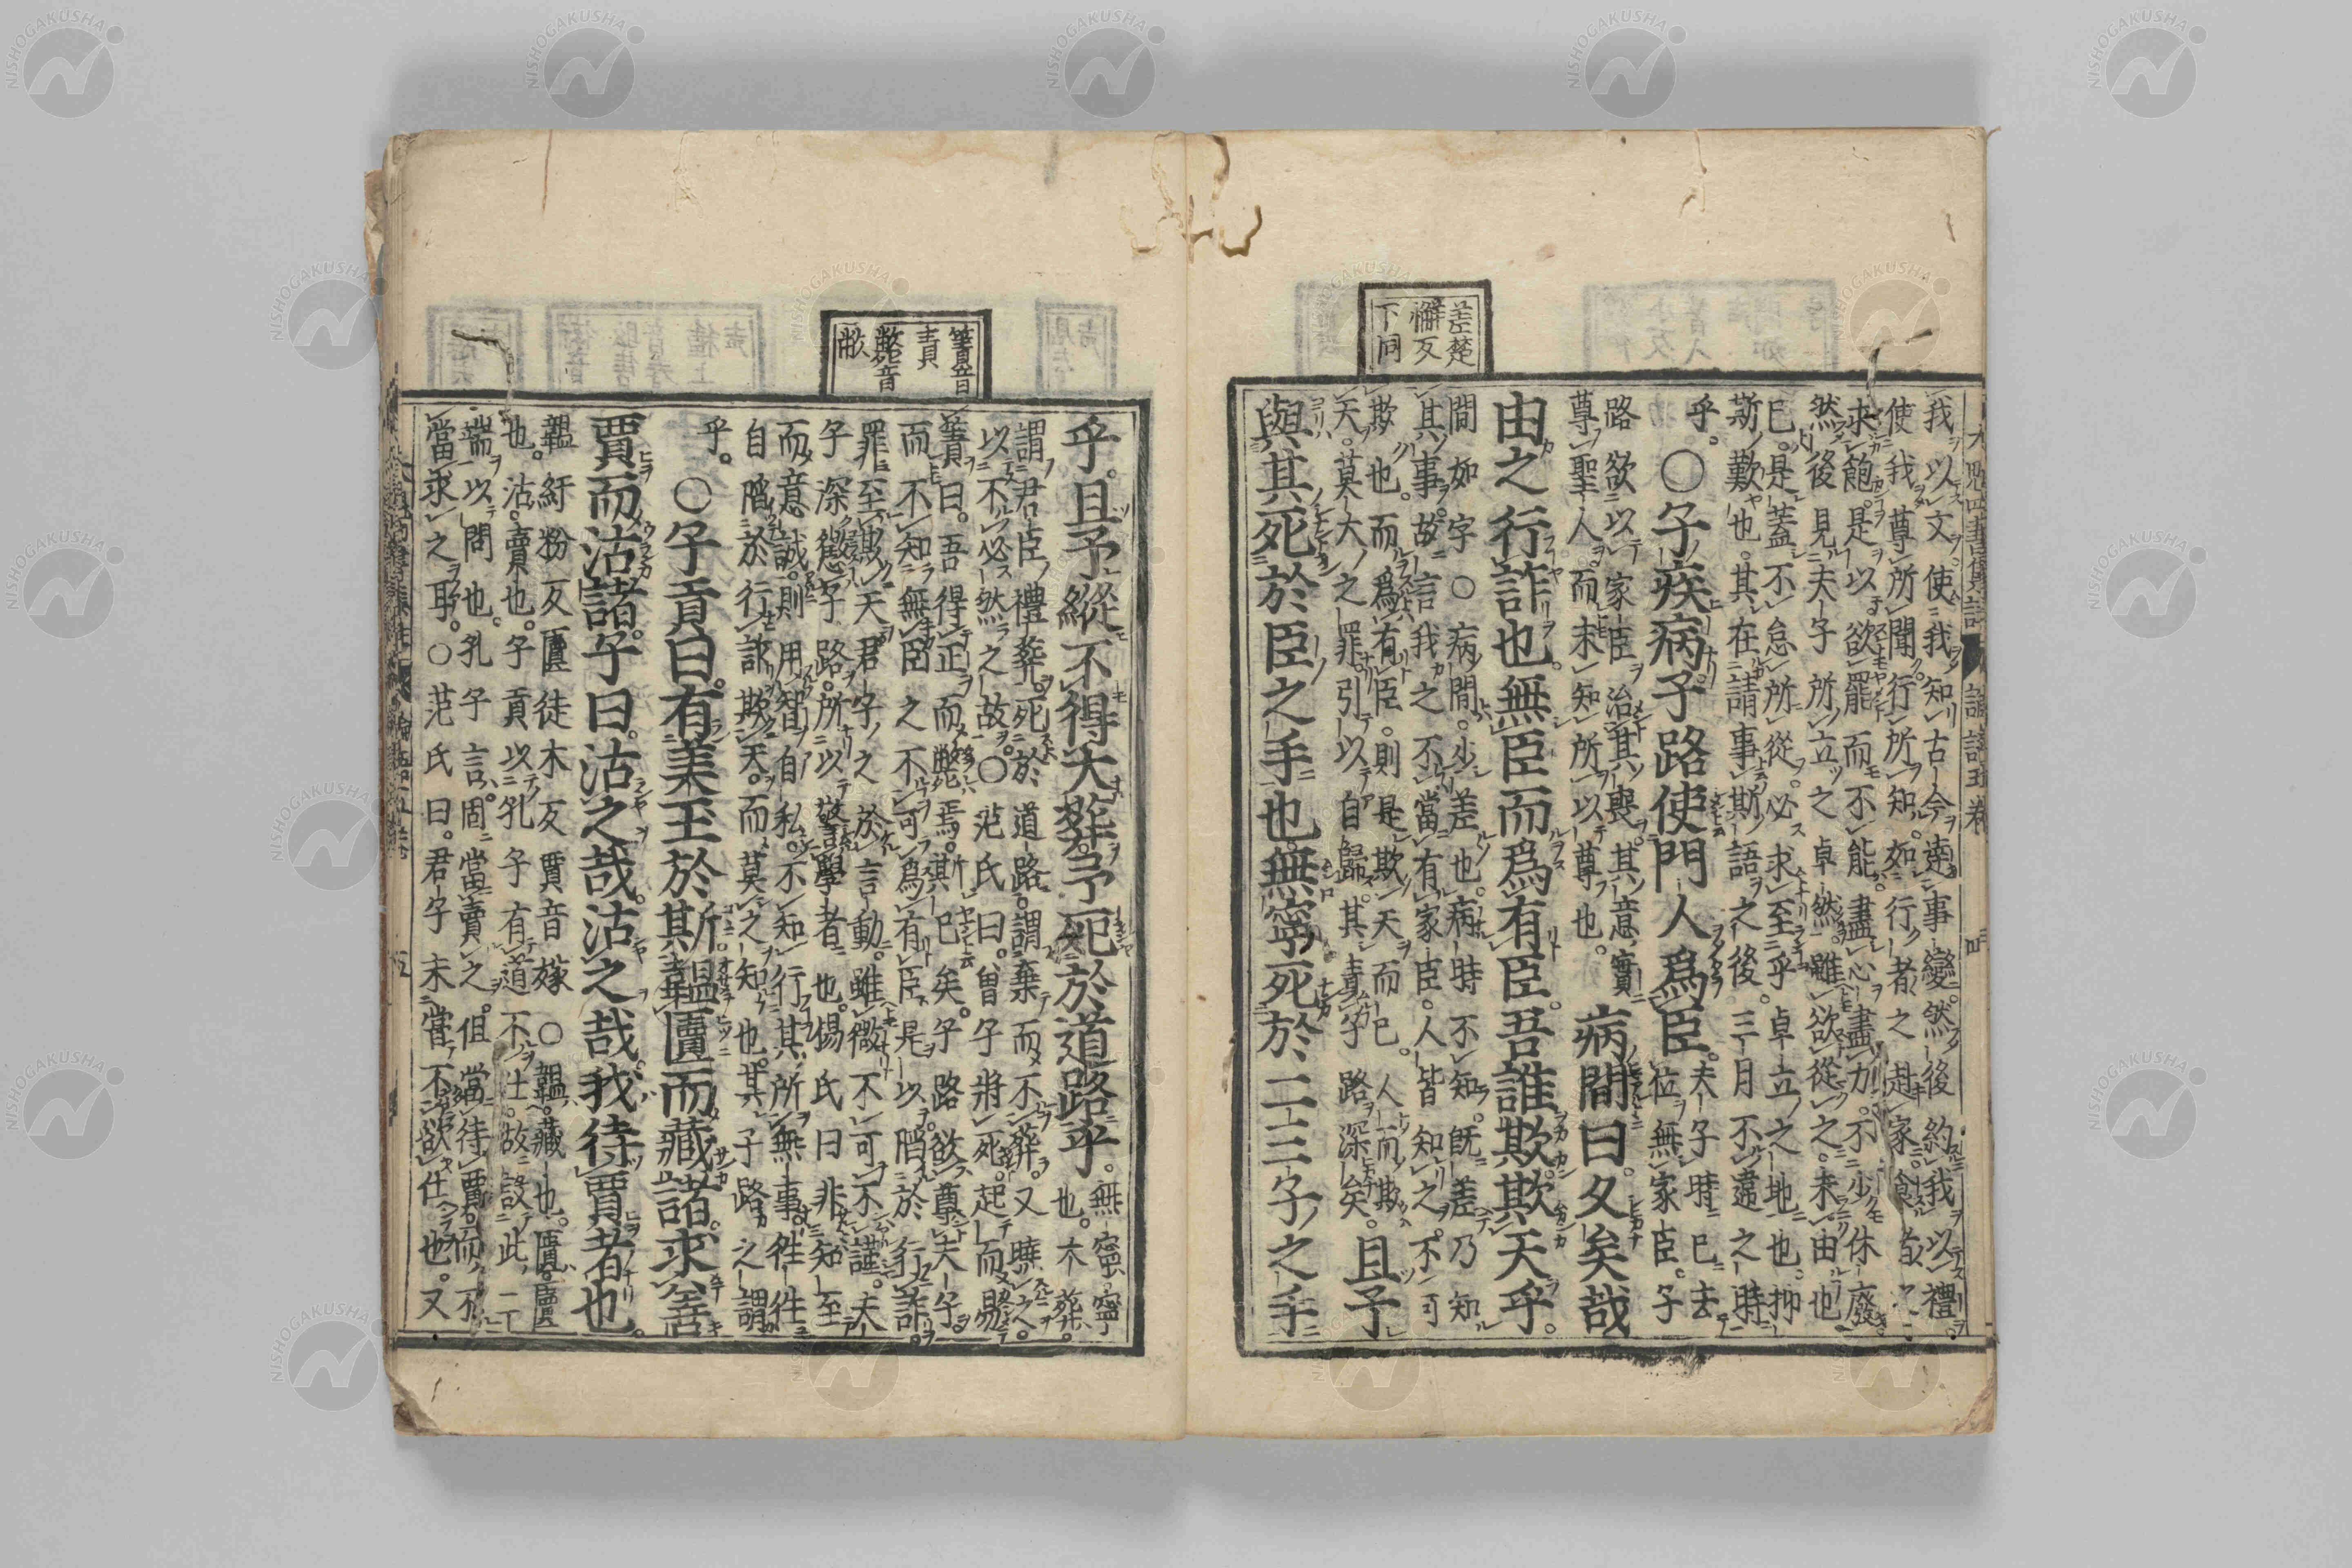 差楚
懈反
下同
我以文使我知古今達事變然後約我以禮
使我尊所聞行所知如行者之赴家食者之
求飽是以欲罷而不能盡心盡力不少休廢
然後見夫子所立之卓然雖欲從之末由也
已是蓋不怠所從必求至乎卓立之地也抑
斯歎也其在請事斯語之後三月不違之時
乎○子疾病子路使門人爲臣夫子時已去
位無家臣子
路欲以家臣治其喪其意實
尊聖人而未知所以尊也
病間曰久矣哉
由之行詐也無臣而爲有臣吾誰欺欺天乎
間如字○病間少差也病時不知既差乃知
其事故言我之不當有家臣人皆知之不可
欺也而爲有臣則是欺天而已人而欺
天莫大之罪引以自歸其責子路深矣
且予
與其死於臣之手也無寧死於二三子之手
簀音
責
憋音
敝
乎且予縱不得大葬予死於道路乎
無寧寧
也大葬
謂君臣禮葬死於道路謂棄而不葬又曉之
以不必然之故○范氏曰曾子將死起而易
簀曰吾得正而斃焉斯已矣子路欲尊夫子
而不知無臣之不可爲有臣是以陷於行詐
罪至欺天君子之於言動雖微不可不謹夫
子深懲子路所以警學者也楊氏曰非知至
而意誠則用智自私不知行其所無事往往
自陷於行詐欺天而莫之知也其子路之謂
乎
○子貢曰有美玉於斯韞匵而藏諸求善
賈而沽諸子曰沽之哉沽之哉我待賈者也
韞紆粉反匵徒木反賈音嫁○韞藏也匵匱
也沽賣也子貢以孔子有道不仕故設此二
端以問也孔子言固當賣之但當待賈而不
當求之耳○范氏曰君子未嘗不欲仕也又